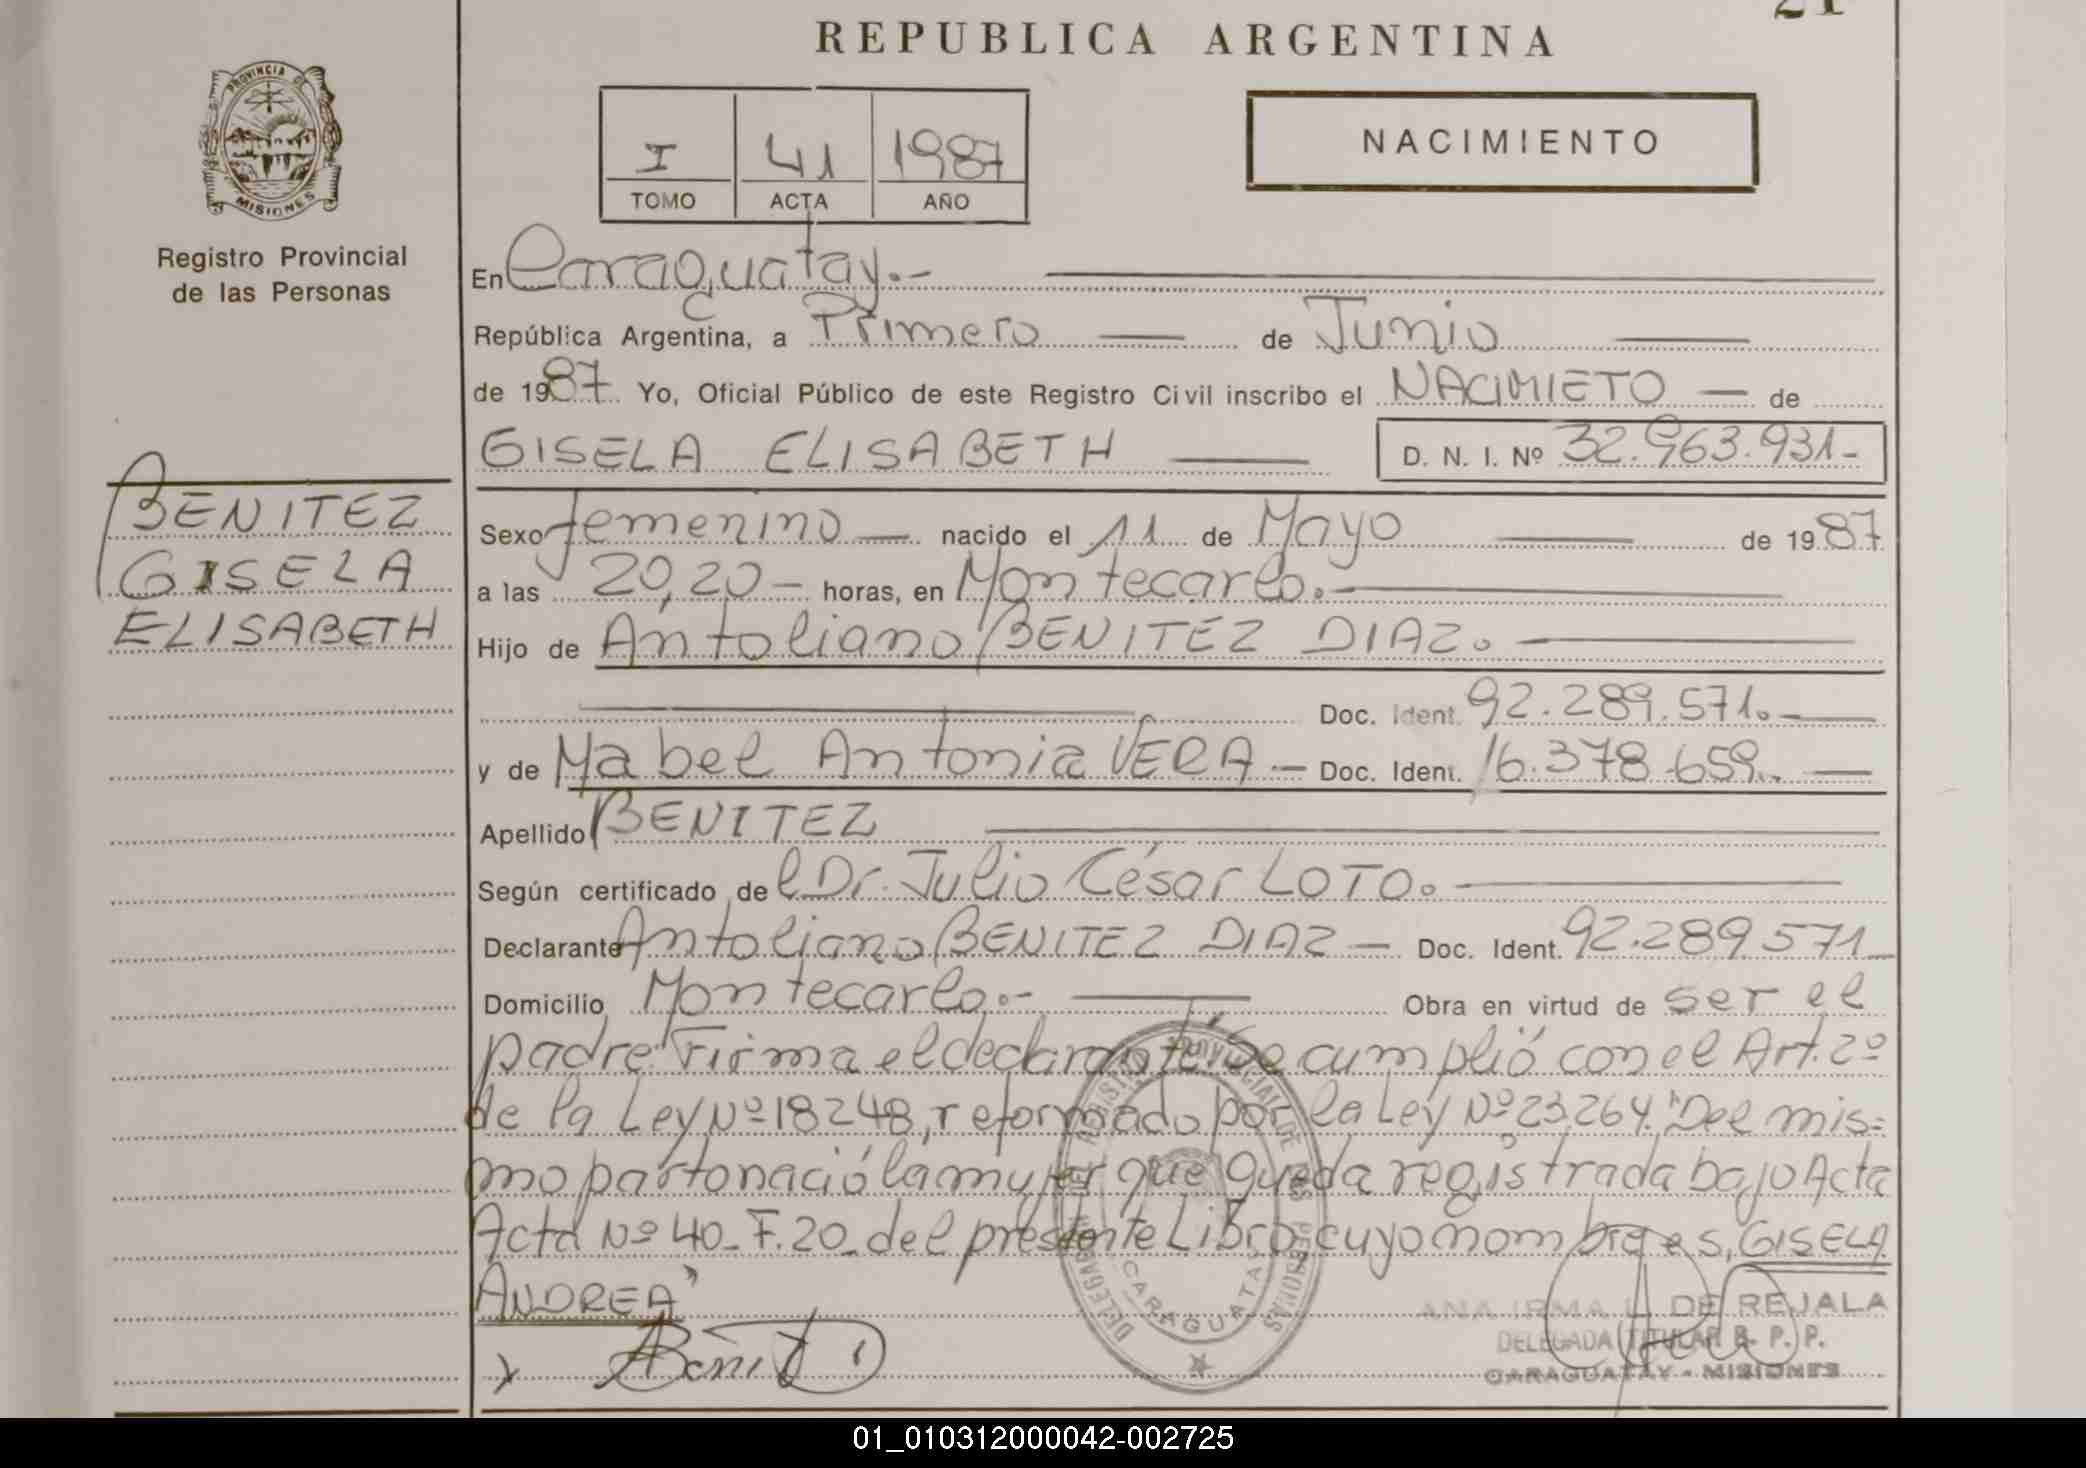 21
REPUBLICA ARGENTINA
PROVINCIA DE
MISIONES
Registro Provincial
de las Personas
I 41 1987
TOMO ACTA AÑO
NACIMIENTO
En Caraguatay.-
República Argentina, a Primero de Junio
de 1987 Yo, Oficial Público de este Registro Civil inscribo el NACIMIETO de
GISELA ELISABETH D. N. I. Nº 32.963.931-
BENITEZ
GISELA
ELISABETH
Sexo femenino nacido el 11 de Mayo de 1987
a las 20,20- horas, en Montecarlo.-
Hijo de Antoliano BENITEZ DIAZ.
Doc. Ident. 92.289.571.-
y de Mabel Antonia VERA - Doc. Ident. 16.378.659.-
Apellido BENITEZ
Según certificado de l Dr. Julio César LOTO.
Declarante Antoliano BENITEZ DIAZ - Doc. Ident. 92.289.571
Domicilio Montecarlo.- Obra en virtud de ser el
padre. Firma el declarante, se cumplió con el Art. 2º
de la Ley Nº 18248, reformado por la Ley Nº 23.264. "Del mis=
mo parto nació la mujer que queda registrada bajo Acta
Acta Nº 40_F.20_del presente Libro, cuyo nombre es, GISELA
ANDREA"
DELEGACION DEL REGISTRO PROVINCIAL DE LAS PERSONAS
CARAGUATAY
ANA IRMA L. DE REJALA
DELEGADA TITULAR R. P. P.
CARAGUATAY - MISIONES
01_010312000042-002725